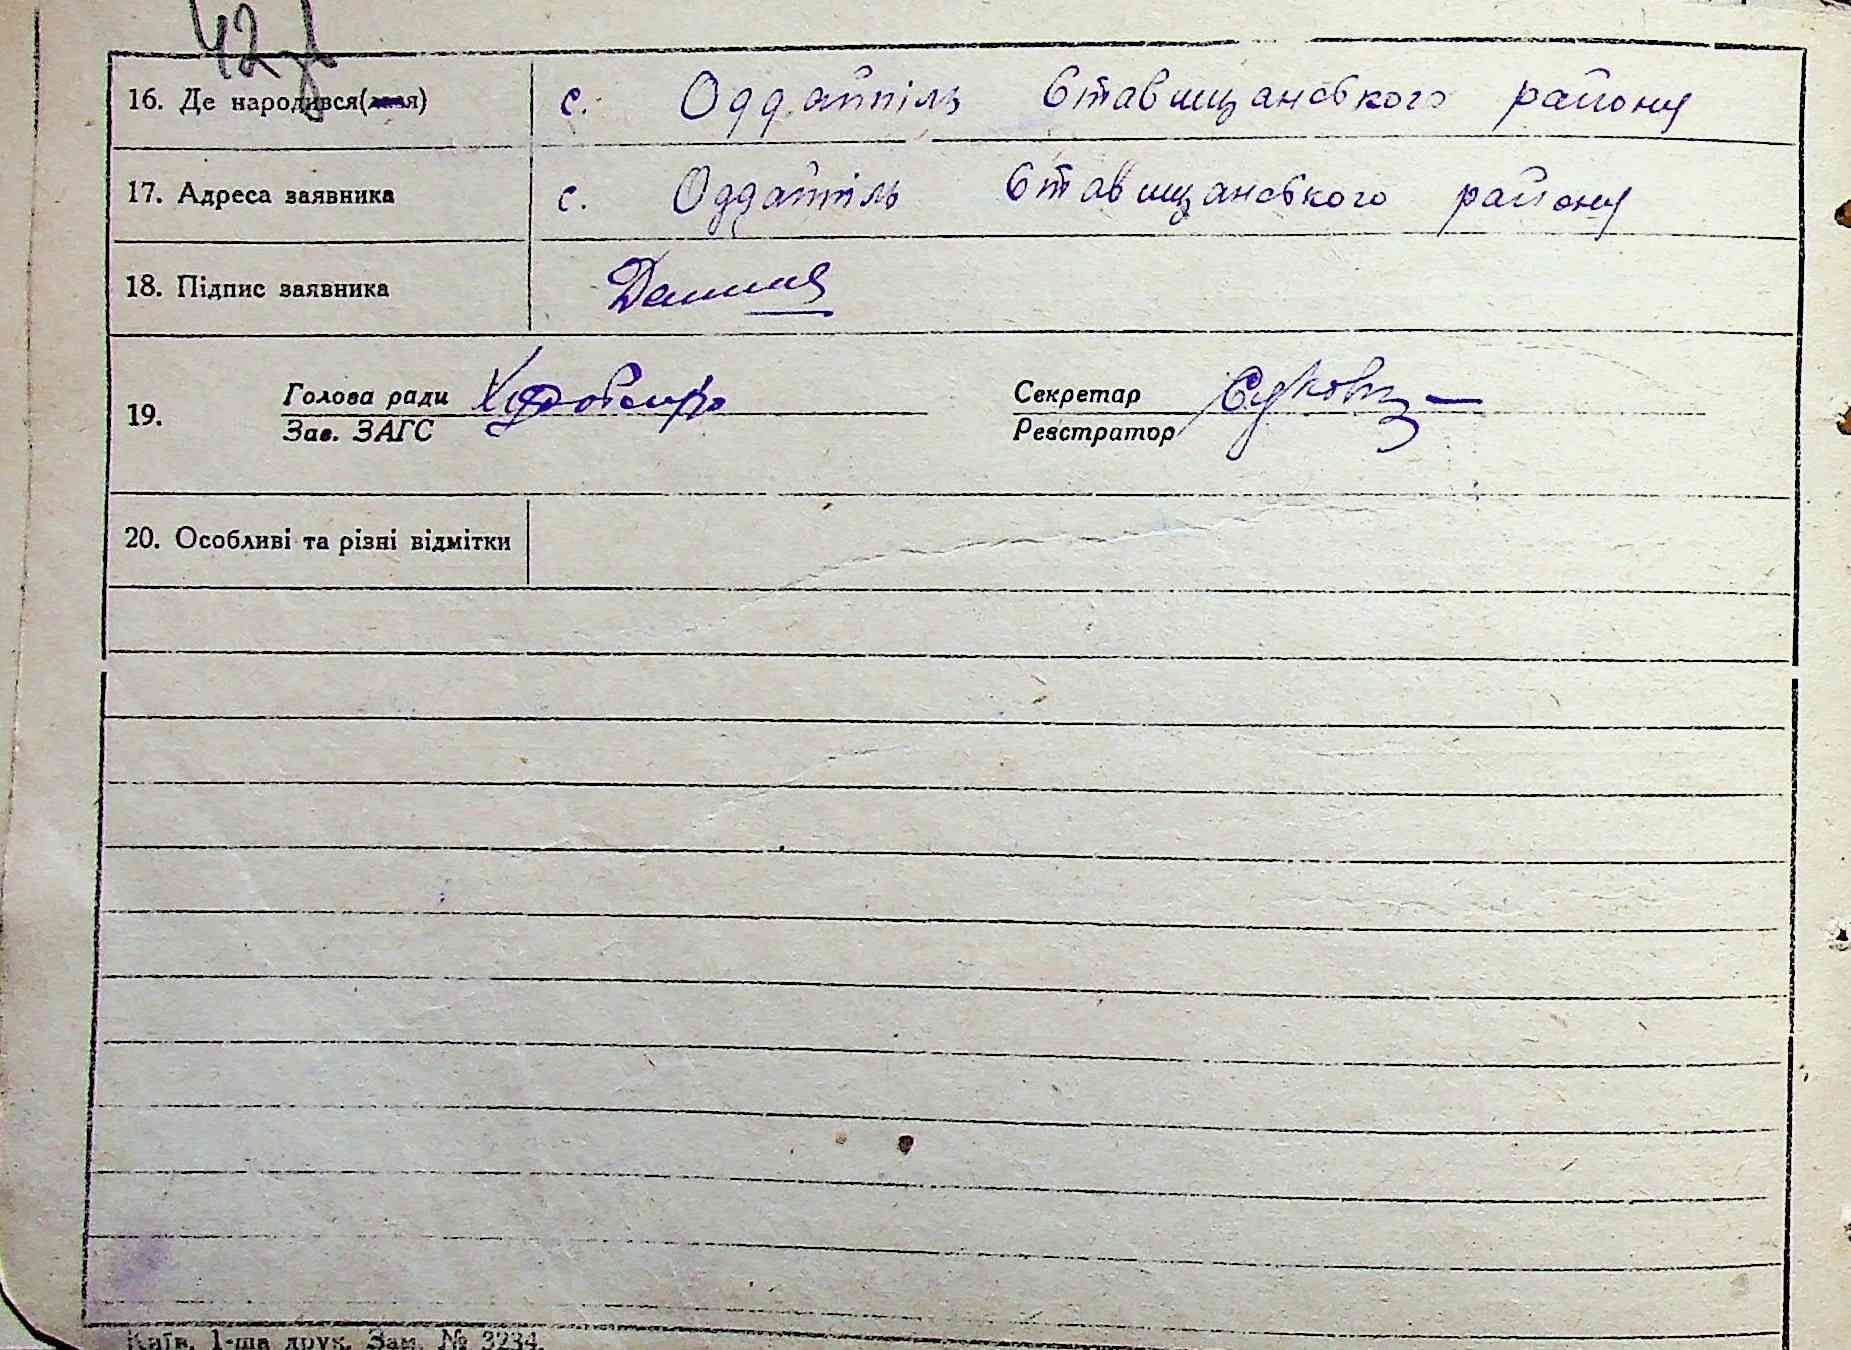 42
16. Де народився(лася) с. Оддайпіль Ставищанського району
17. Адреса заявника с. Оддайпіль Ставищанського району
18. Підпис заявника
19. Голова ради Секретар
Зав. ЗАГС Реєстратор
20. Особливі та різні відмітки
Київ, 1-ша друк. Зам. № 3234.